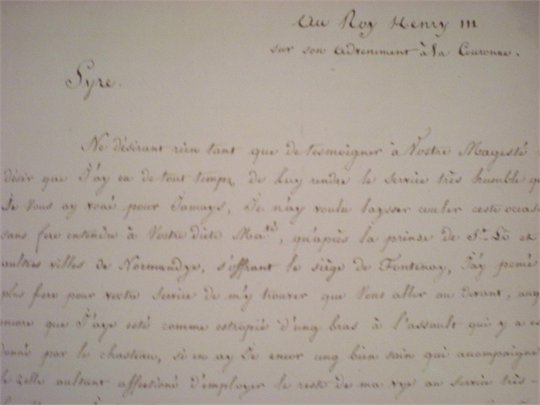 Au Roy Henry III
sur son advenement à la Couronne.
Syre.
Ne désirant rien tant que de tesmoigner à Vostre Magesté
désir que J'ay eu de tout temps, de luy rendre le service très humble q
Je vous ay voué pour Jamays, Je n'ay voulu laysser couler ceste occas
sans fere entendre à Vostre dicte Maté, qu'après la prinse de St Lô et
aultres villes de Normandye, s'offrant le siège de Fontenay, J'ay pensé
plus fere pour vostre service de m'y trouver que Vous aller au devant, anq
encore que J'aye esté comme estropié d'ung bras à l'assault qui y a es
donné par le chasteau, si en ay Je encor ung bien sain qui accompaigne
le zelle aultant affectioné d'employer le reste de ma vye au service très-